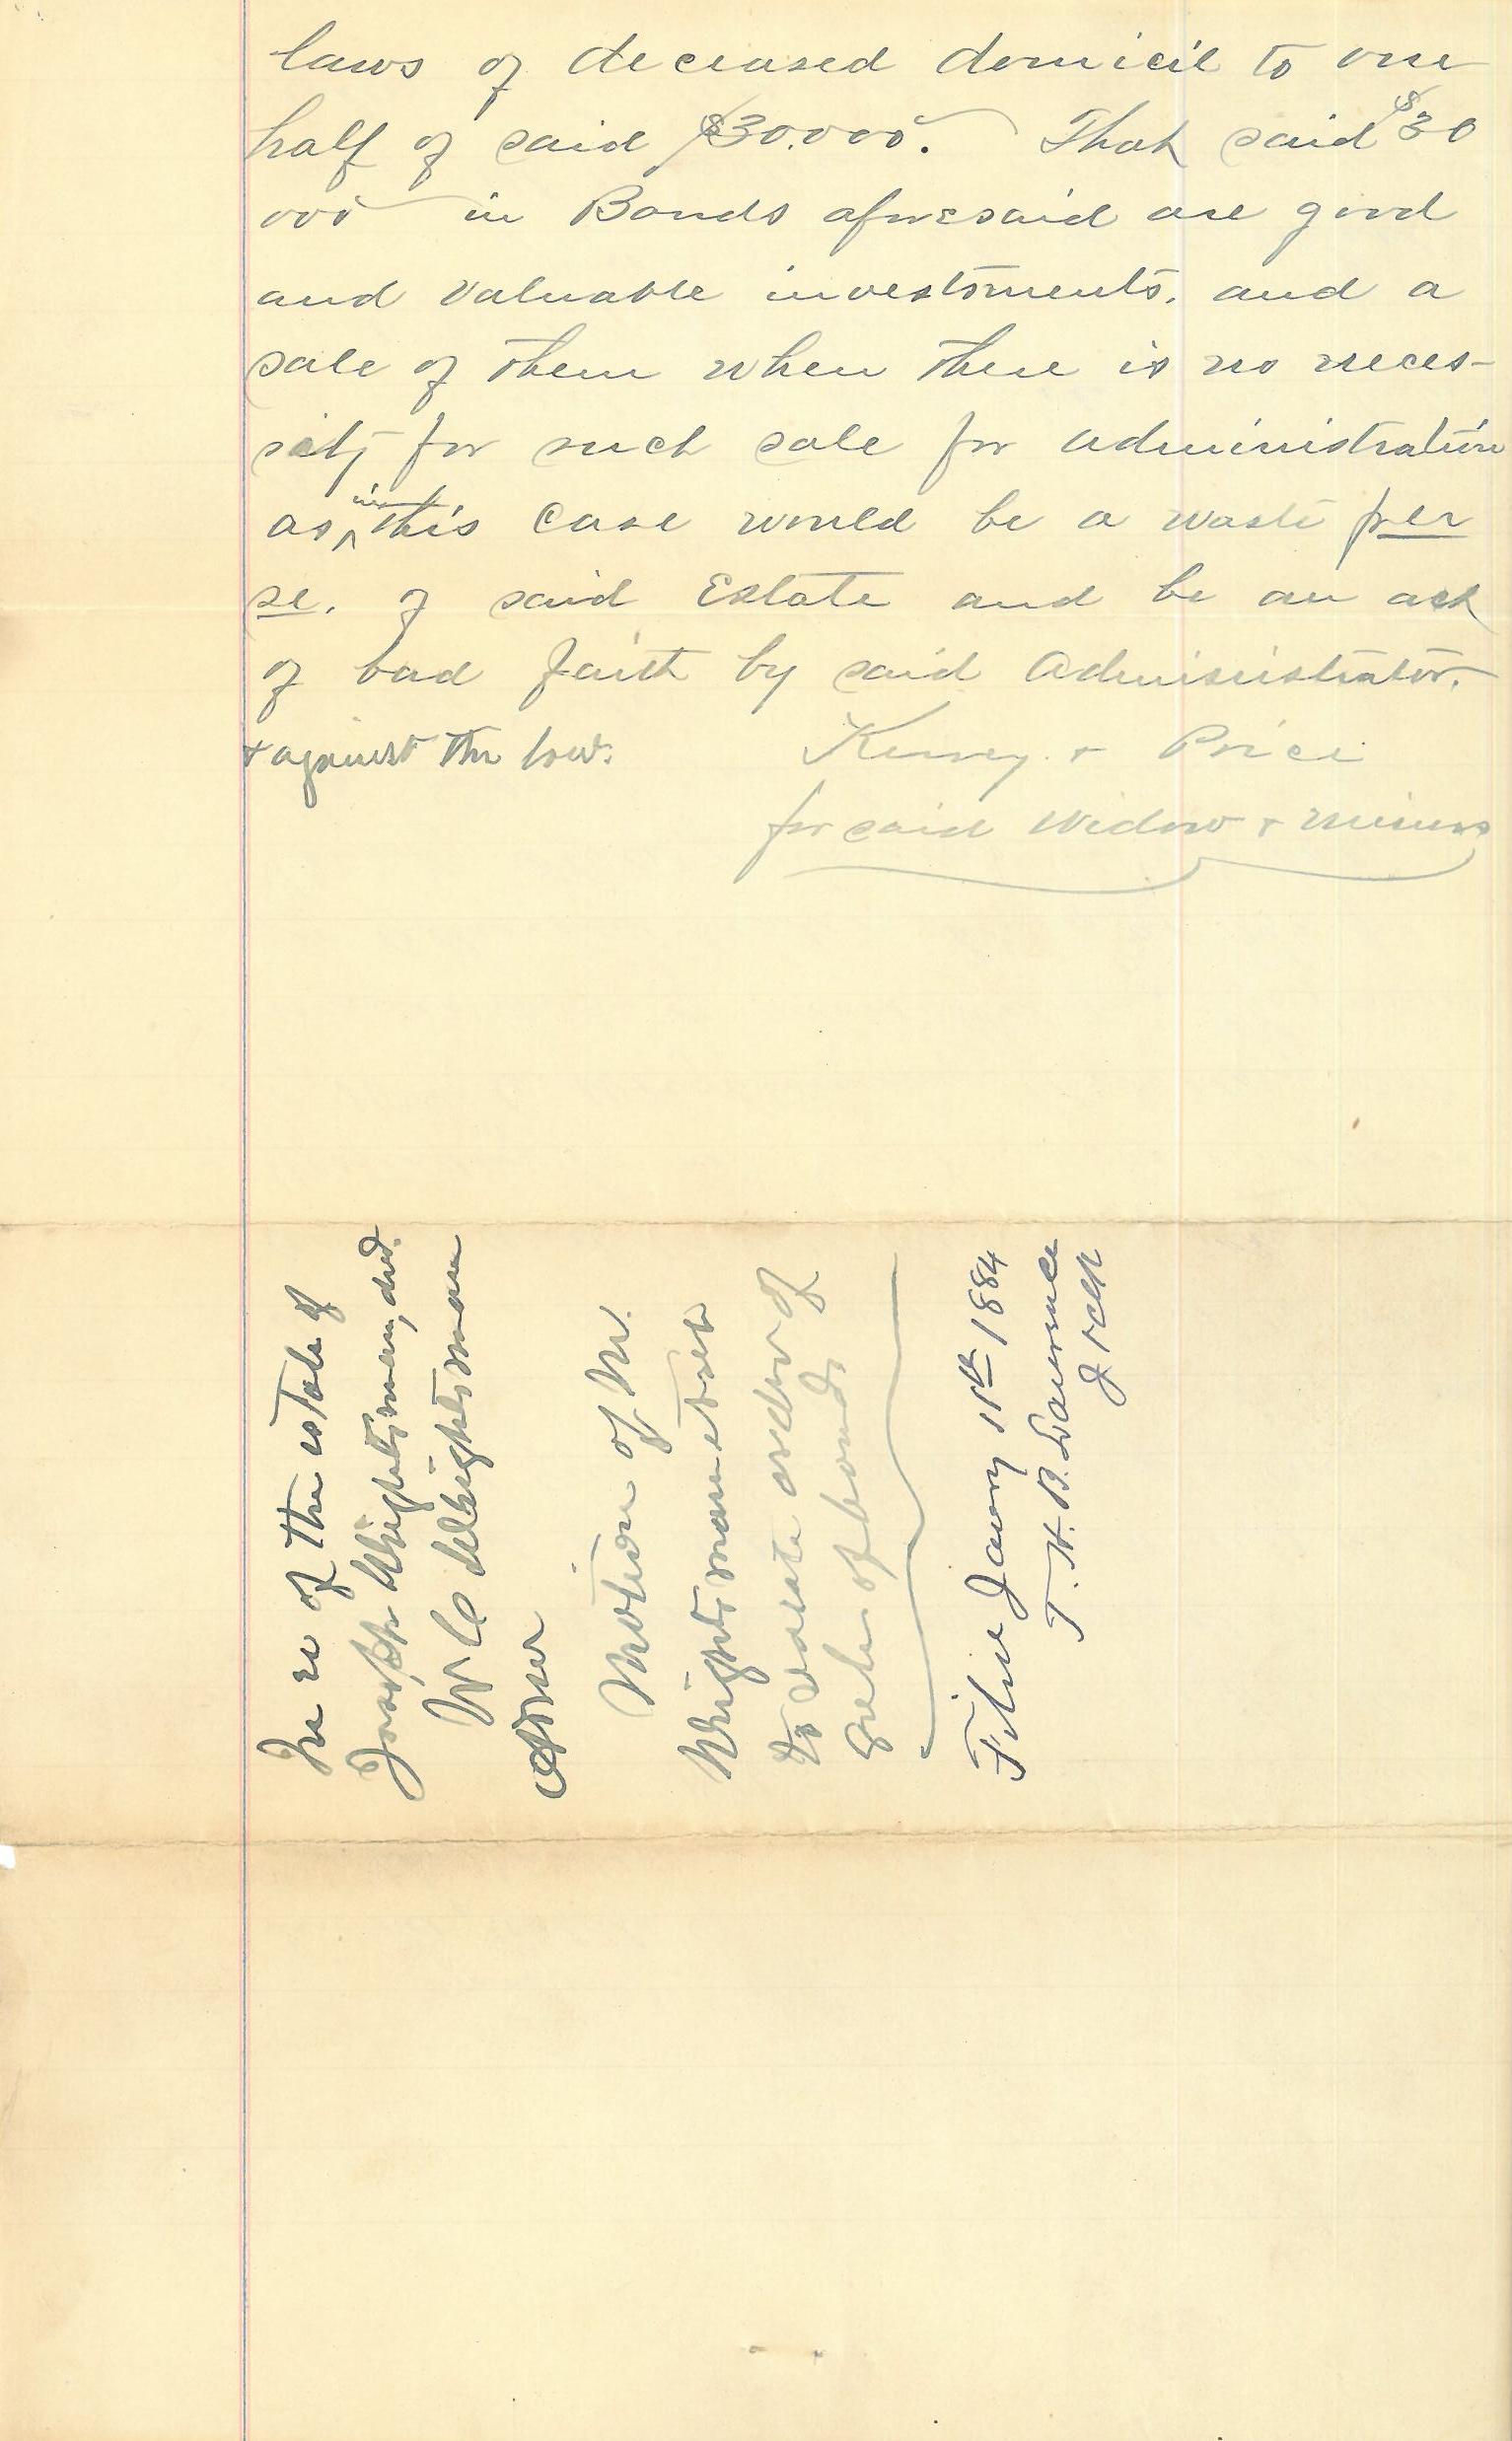 laws of deceased domicil to one
half of said $30.000. That said $30
000 in Bonds aforesaid are good
and valuable investments. and a
sale of them when there is no neces-
sity for such sale for administration
as in this case would be a waste per
se. of said Estate and be an act
of bad faith by said Administrator.
+ against the law.
+ Price
for said Widow + minors
In re of the estate of
Joseph Wrightsman, decd.
W C Wrightsman
Admr
Motion of M.
Wrightsman et als
to vacate order of
Sale of bonds
Filed Jany 11th 1884
T. H. B. Lawrence
J & clk